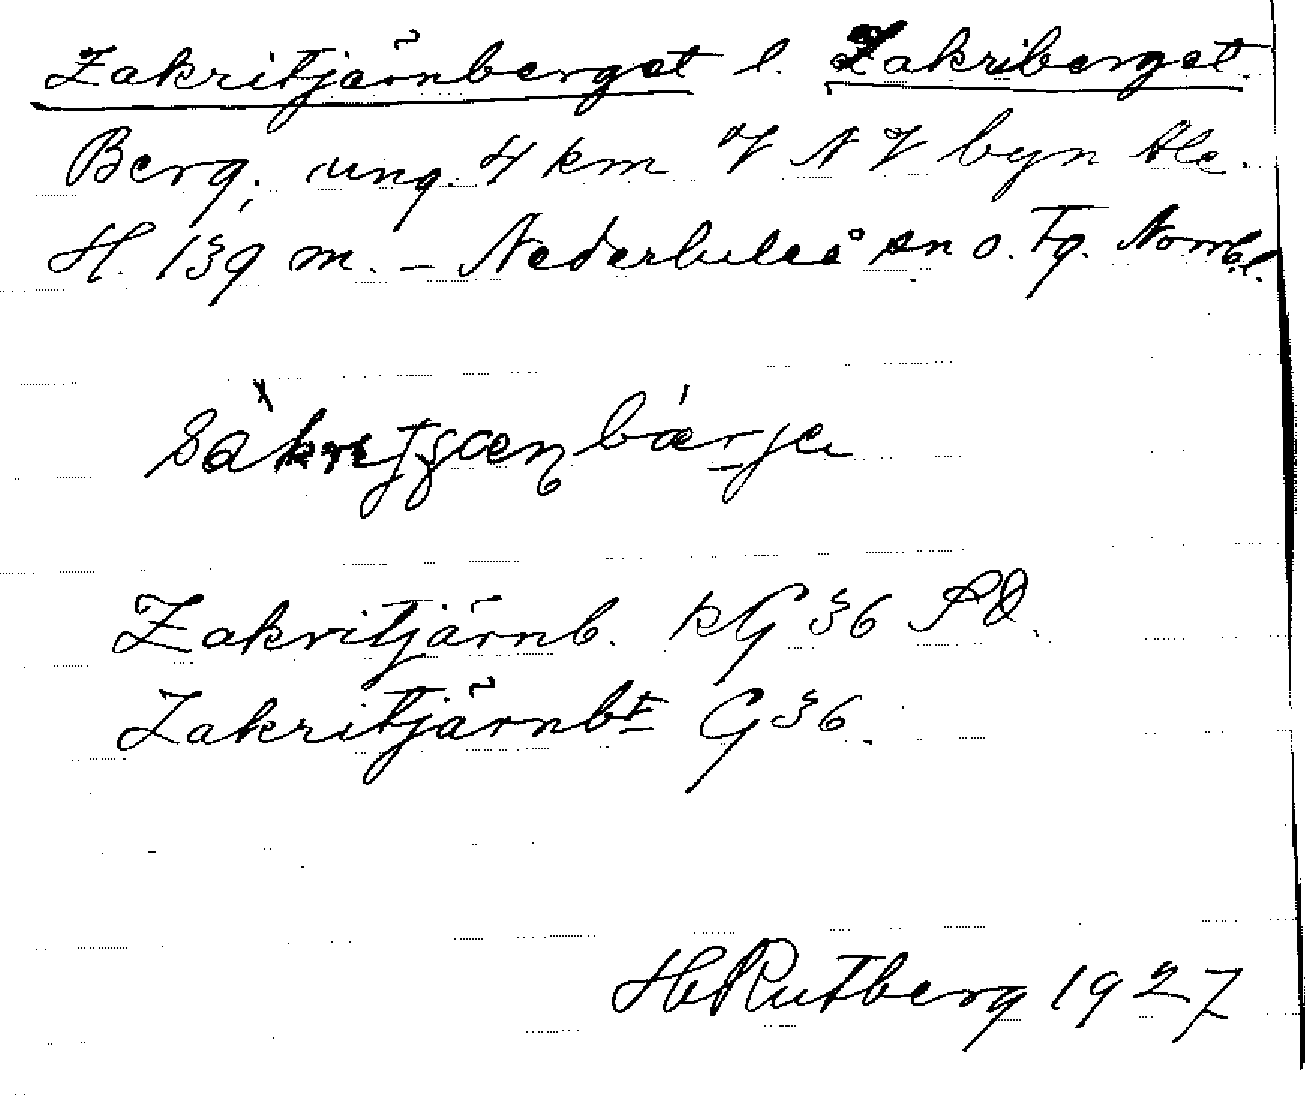 Zakritjärnberget l. Zakriberget.
Berg, ung. 4 km V N V byn Ale.
H. 139 m. – Nederluleå sn o. Tg. Norrb.l.
sàkritjæn bárjə
Zakritjärnb. KG 36 SO.
Zakritjärnbt G 36.
H Rutberg 1927